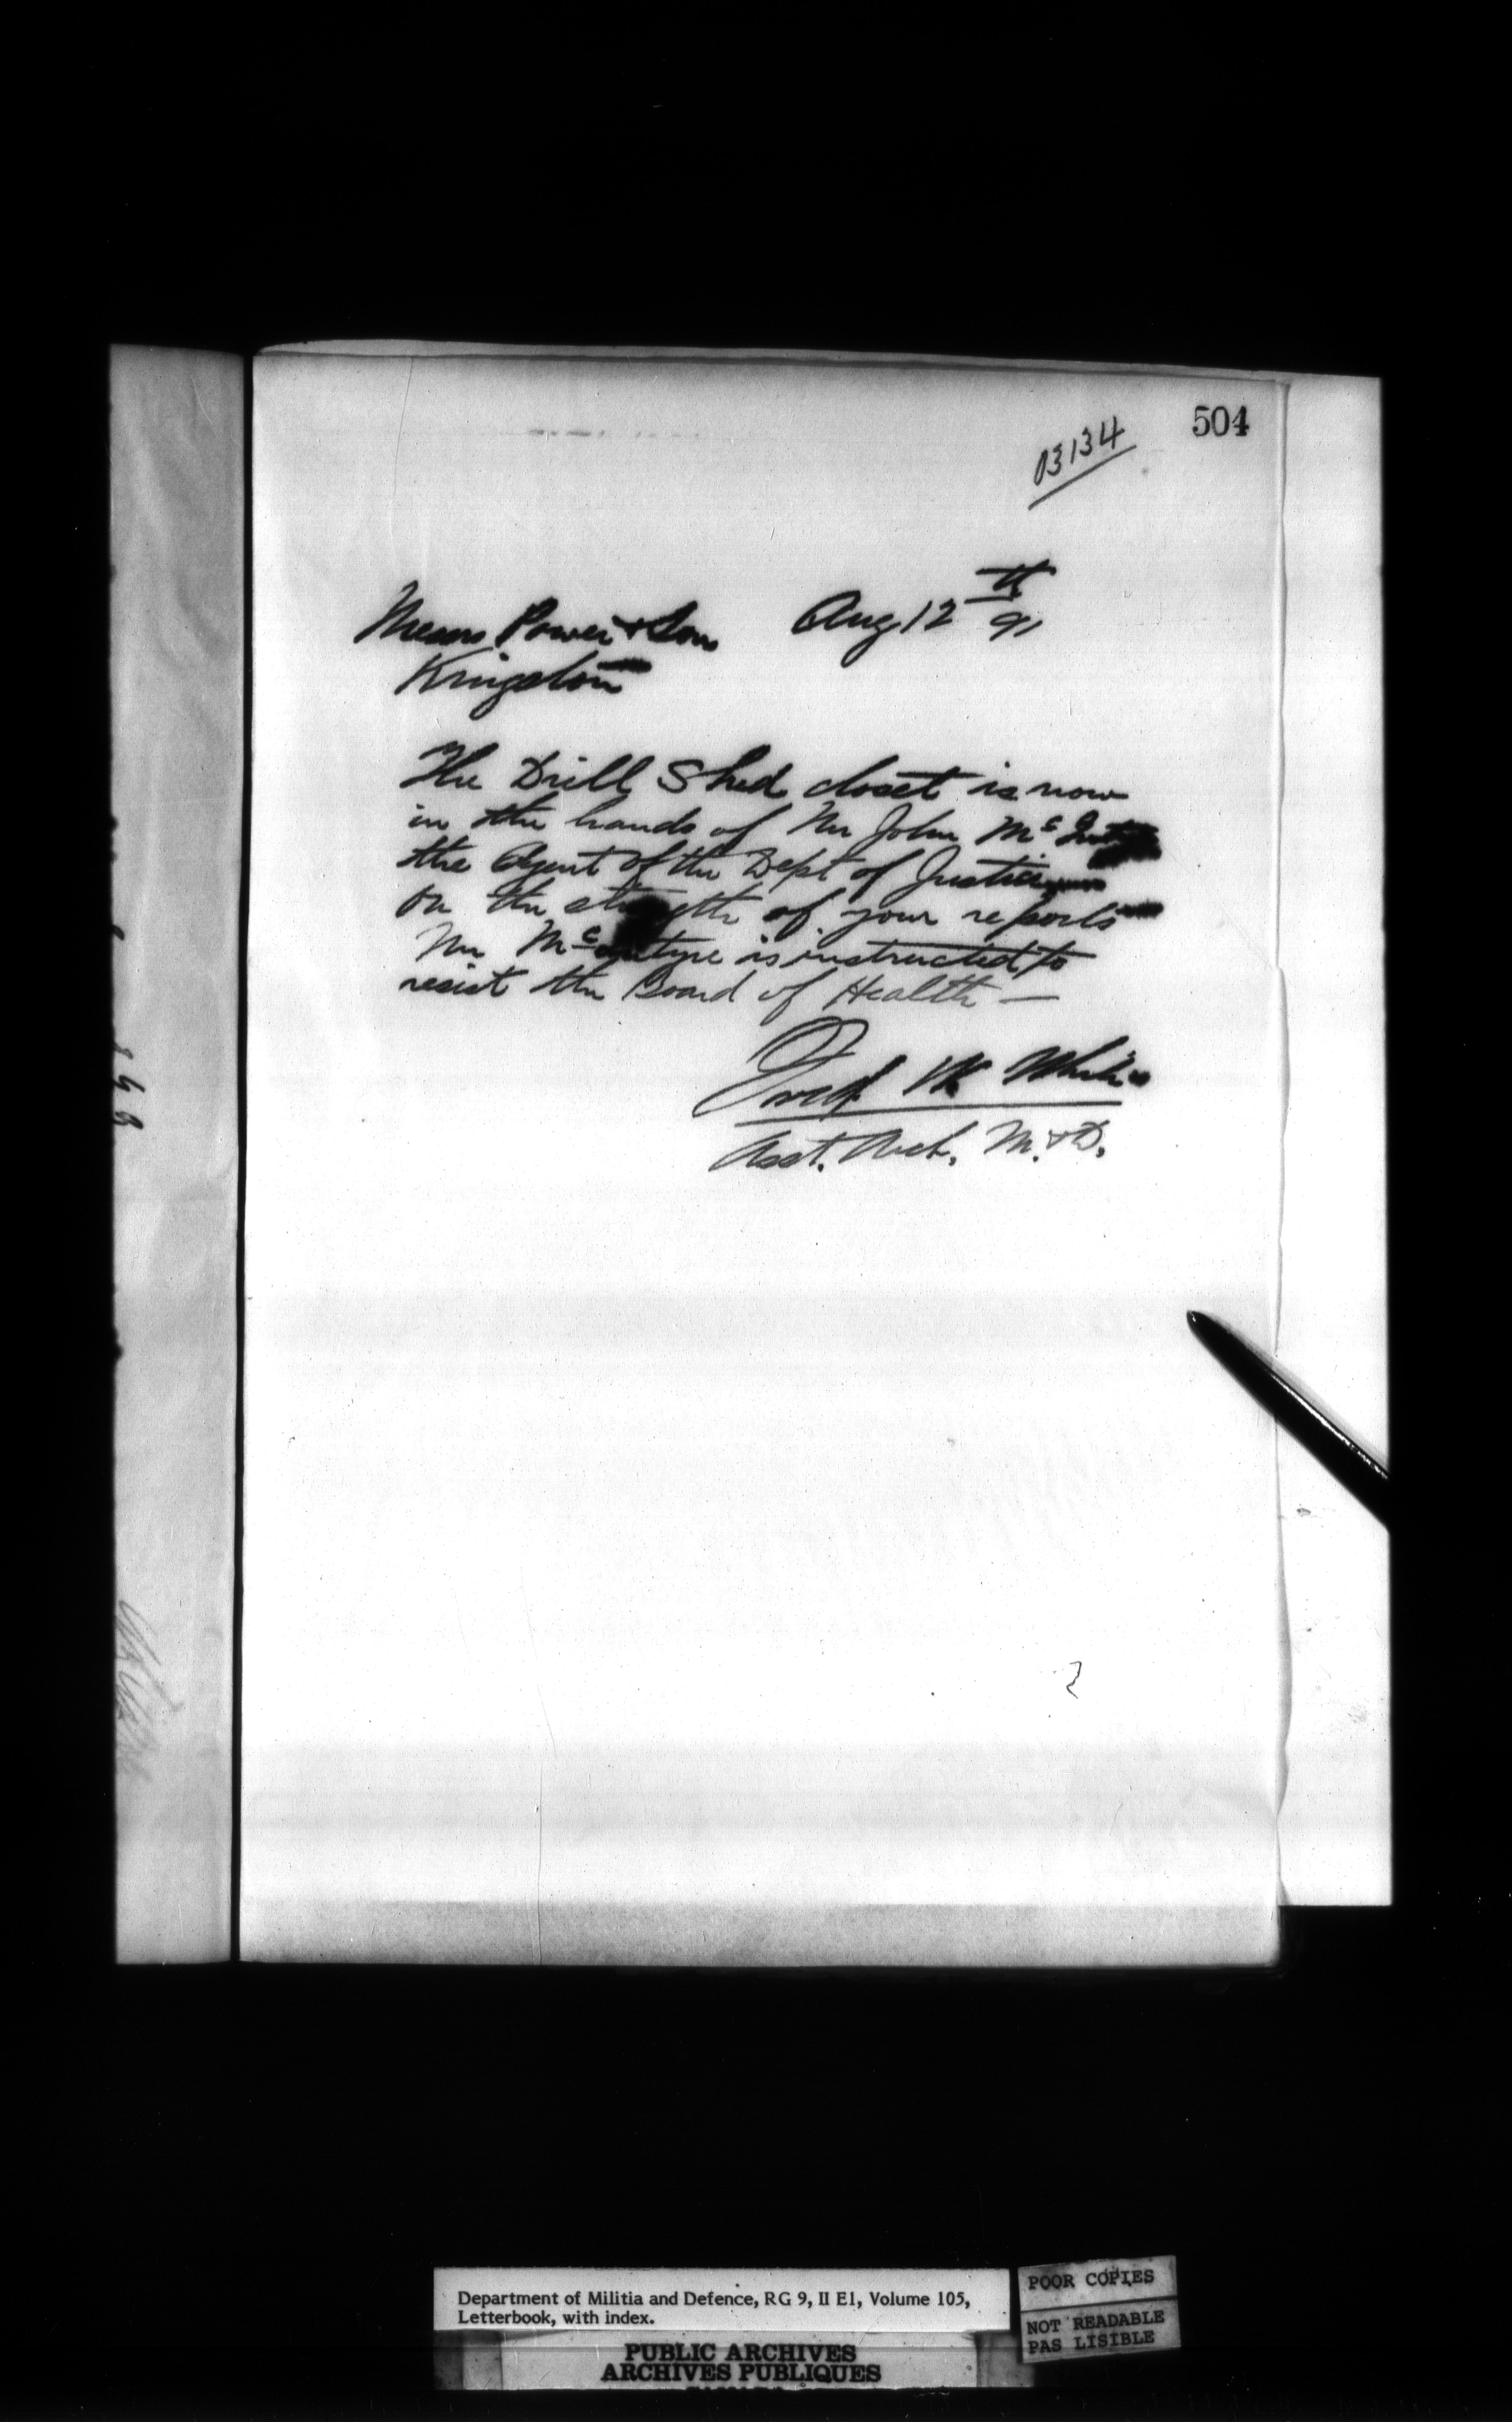 504
13134
Aug 12th 91
Messrs Power & Son
Kingston
The Drill Shed closet is now
in the hands of Mr John McIntyre
the Agent of the Dept of Justice
on the strength of your reports
Mr McIntyre is instructed to
resist the Board of Health —
Fred W White
Asst. Arch. M. & D.
Department of Militia and Defence, RG 9, II E1, Volume 105,
Letterbook, with index.
POOR COPIES
NOT READABLE
PAS LISIBLE
PUBLIC ARCHIVES
ARCHIVES PUBLIQUES